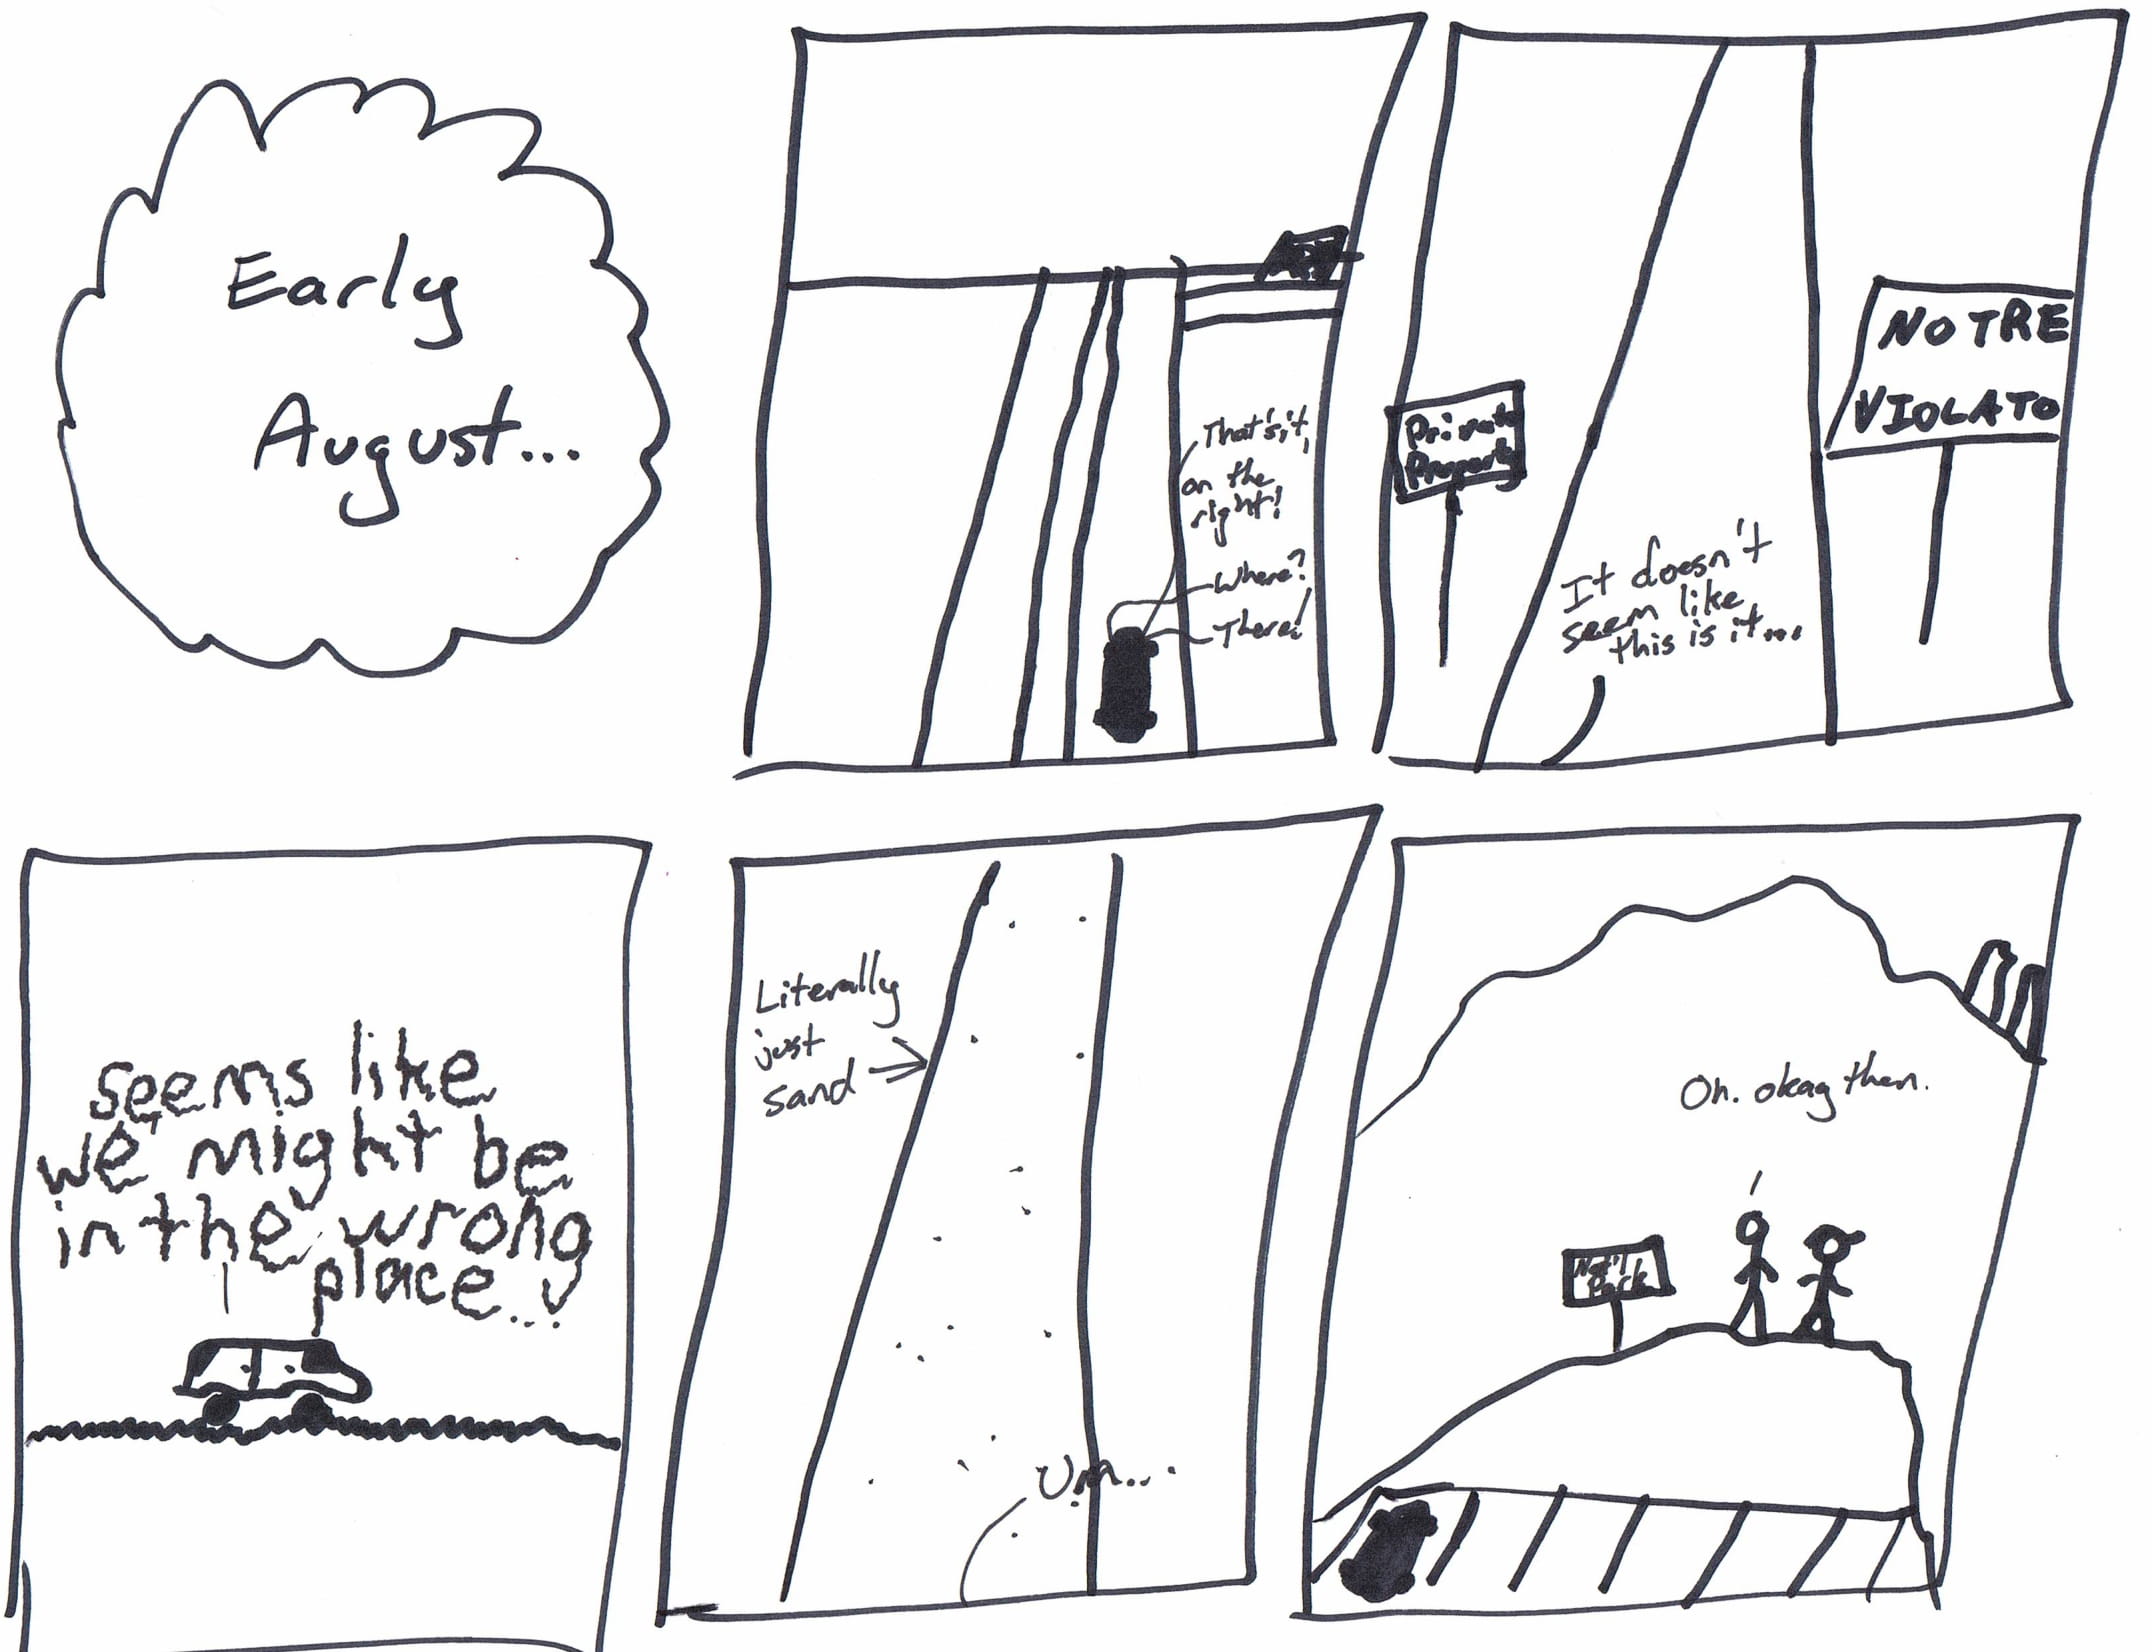 Early
August...
That's it,
on the
right!
Where?
There!
Private
Property
NO TRE
VIOLATO
It doesn't
seem like
this is it...
seems like
we might be
in the wrong
place...
Literally
just
sand
Um...
Oh. okay then.
Nat'l
Park